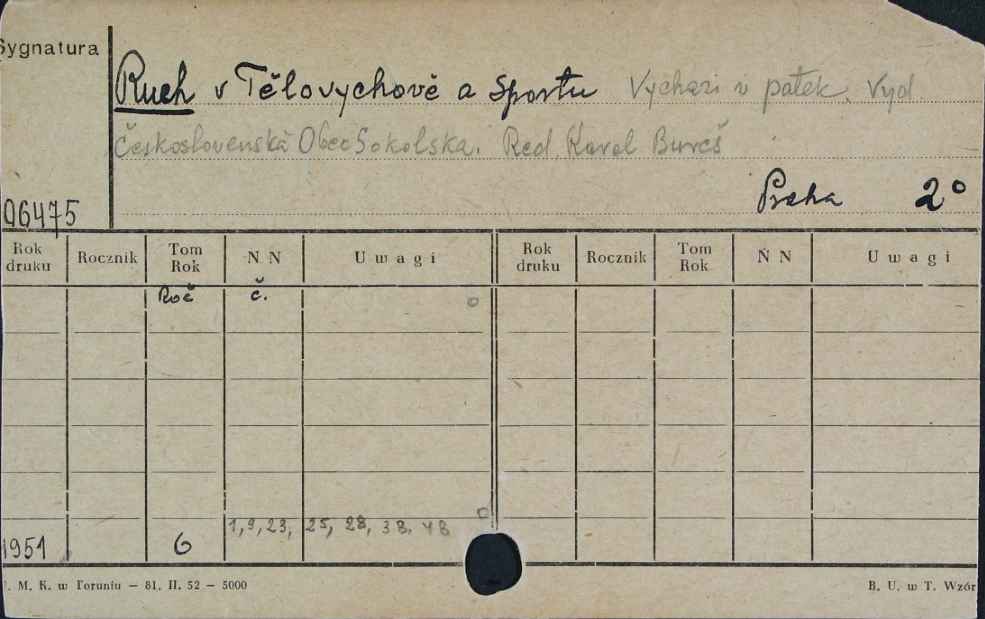 Sygnatura
Ruch v Tělovychově a sportu Vychazi v patek. Vyd
Československá Obec Sokolska. Red. Karel Bureš
Praha 2°
06475
Rok druku Rocznik Tom Rok N N U w a g i Rok druku Rocznik Tom Rok N N U w a g i
Roč č.
1, 9, 23, 25, 28, 38, 48
1951 6
. M. K. w Toruniu — 81. II. 52 — 5000 B. U. w T. Wzór